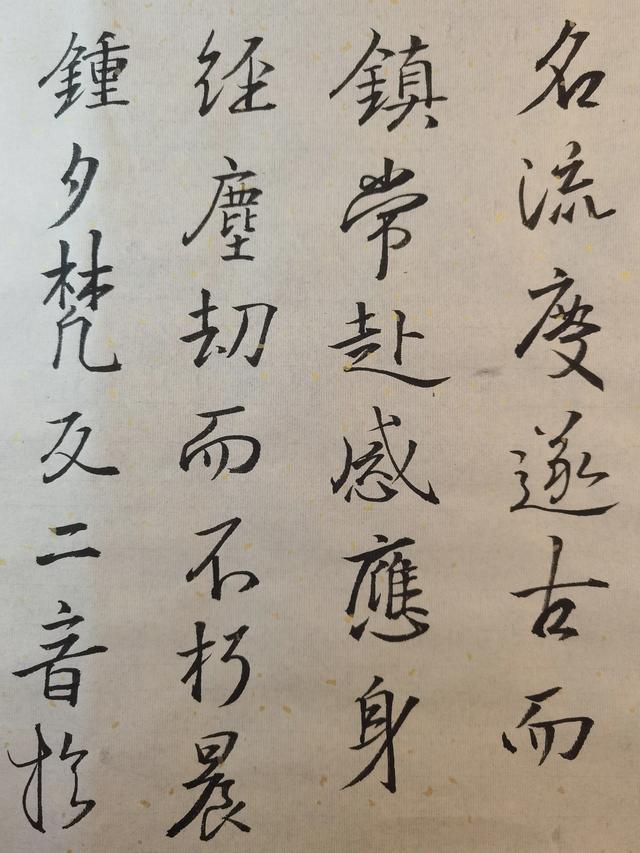 名流度遂古而
鎮常赴感應身
經塵劫而不朽晨
鍾夕梵交二音於